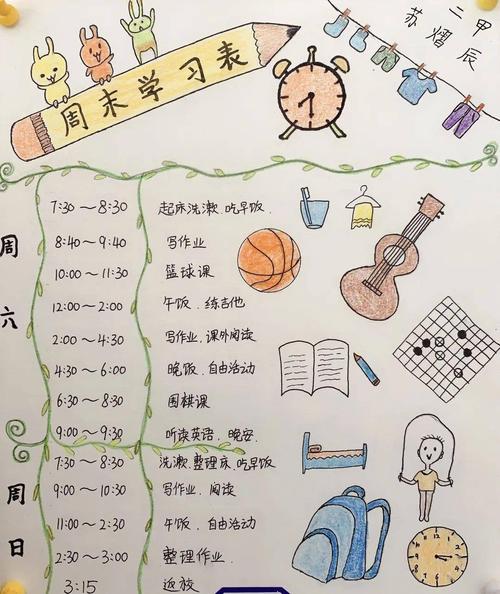 周末学习表
二甲
苏熠辰
周六
7:30～8:30 起床洗漱.吃早饭.
8:40～9:40 写作业
10:00～11:30 篮球课
12:00～2:00 午饭、练吉他
2:00～4:30 写作业.课外阅读
4:30～6:00 晚饭.自由活动
6:30～8:30 围棋课
9:00～9:30 听读英语、晚安.
周日
7:30～8:30 洗漱.整理床.吃早饭
9:00～10:30 写作业、阅读
11:00～2:30 午饭、自由活动
2:30～3:00 整理作业.
3:15 返校